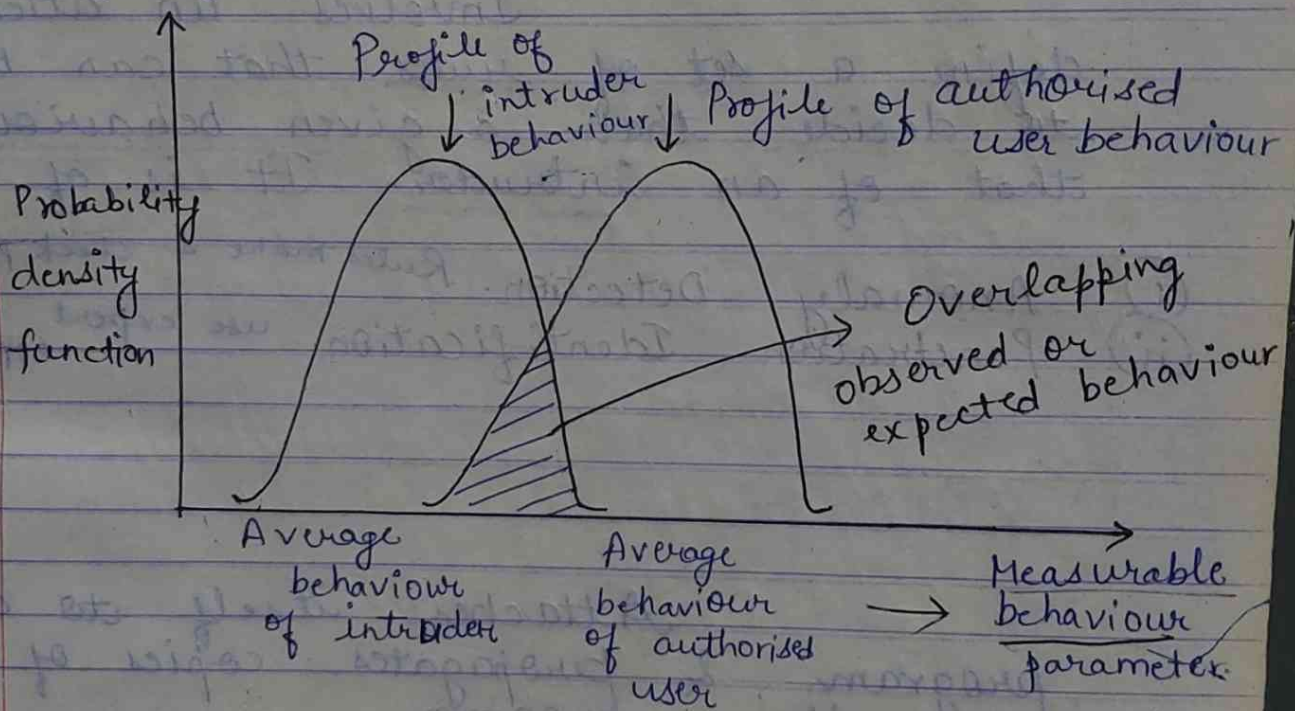 Profile of
intruder
behaviour
Profile of authorised
user behaviour
Probability
density
function
Overlapping
observed or
expected behaviour
Average
behaviour
of intruder
Average
behaviour
of authorised
user
Measurable
behaviour
parameter.